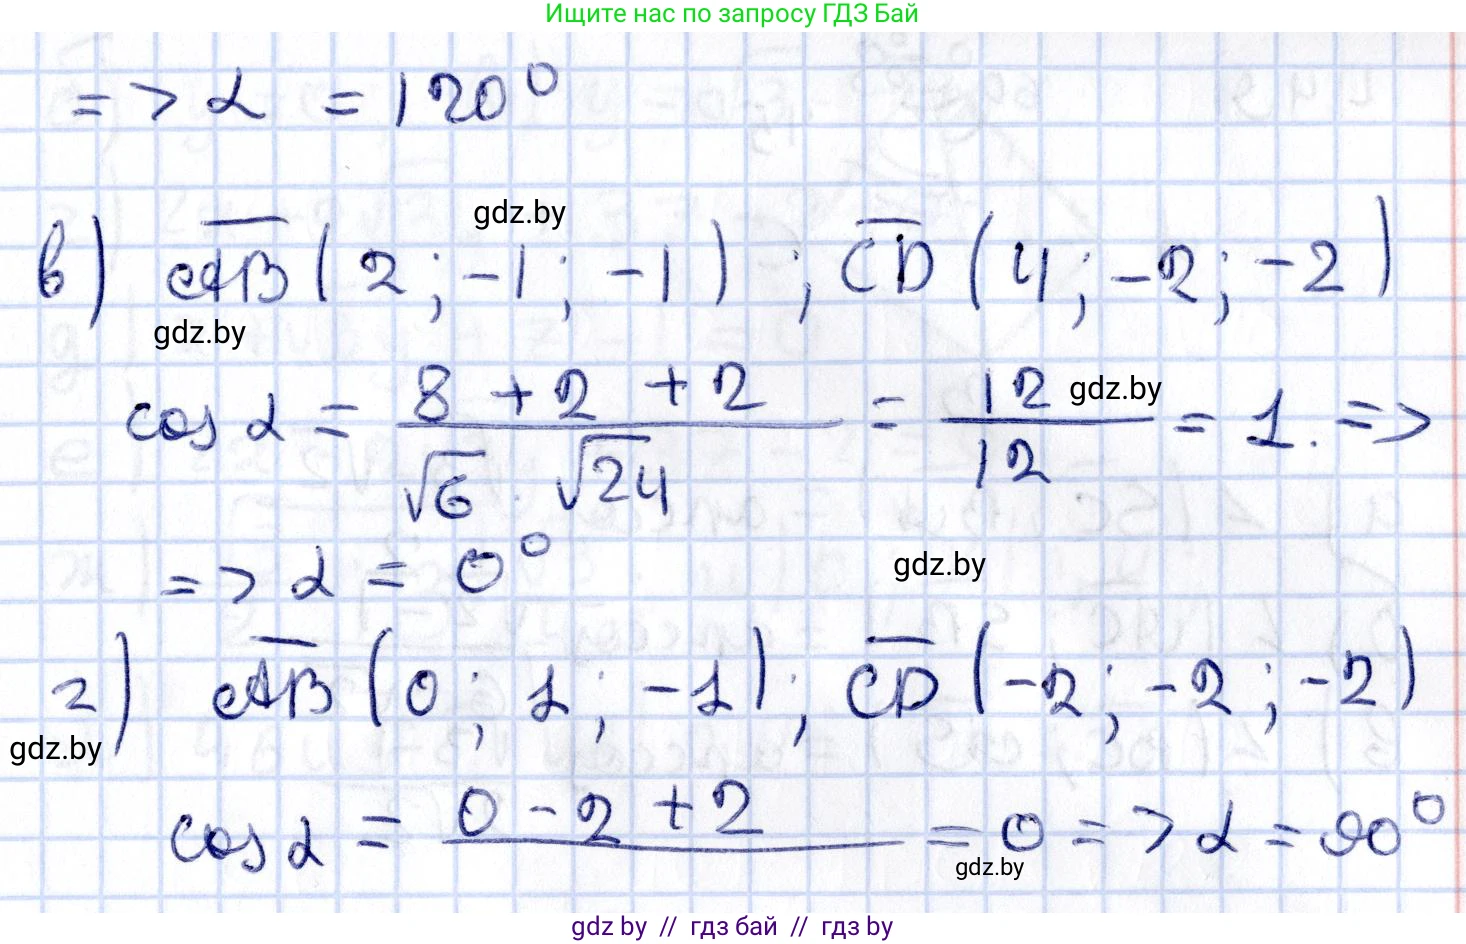 Ищите нас по запросу ГДЗ Бай
=> α = 120°
gdz.by
в) AB (2; -1; -1); CD (4; -2; -2)
gdz.by
cos α = (8 + 2 + 2)/(√6 · √24) = 12/12 = 1. =>
gdz.by
=> α = 0°
gdz.by
г) AB (0; 1; -1); CD (-2; -2; -2)
gdz.by
cos α = 0 - 2 + 2 = 0 => α = 90°
gdz.by
gdz by // гдз бай // гдз by